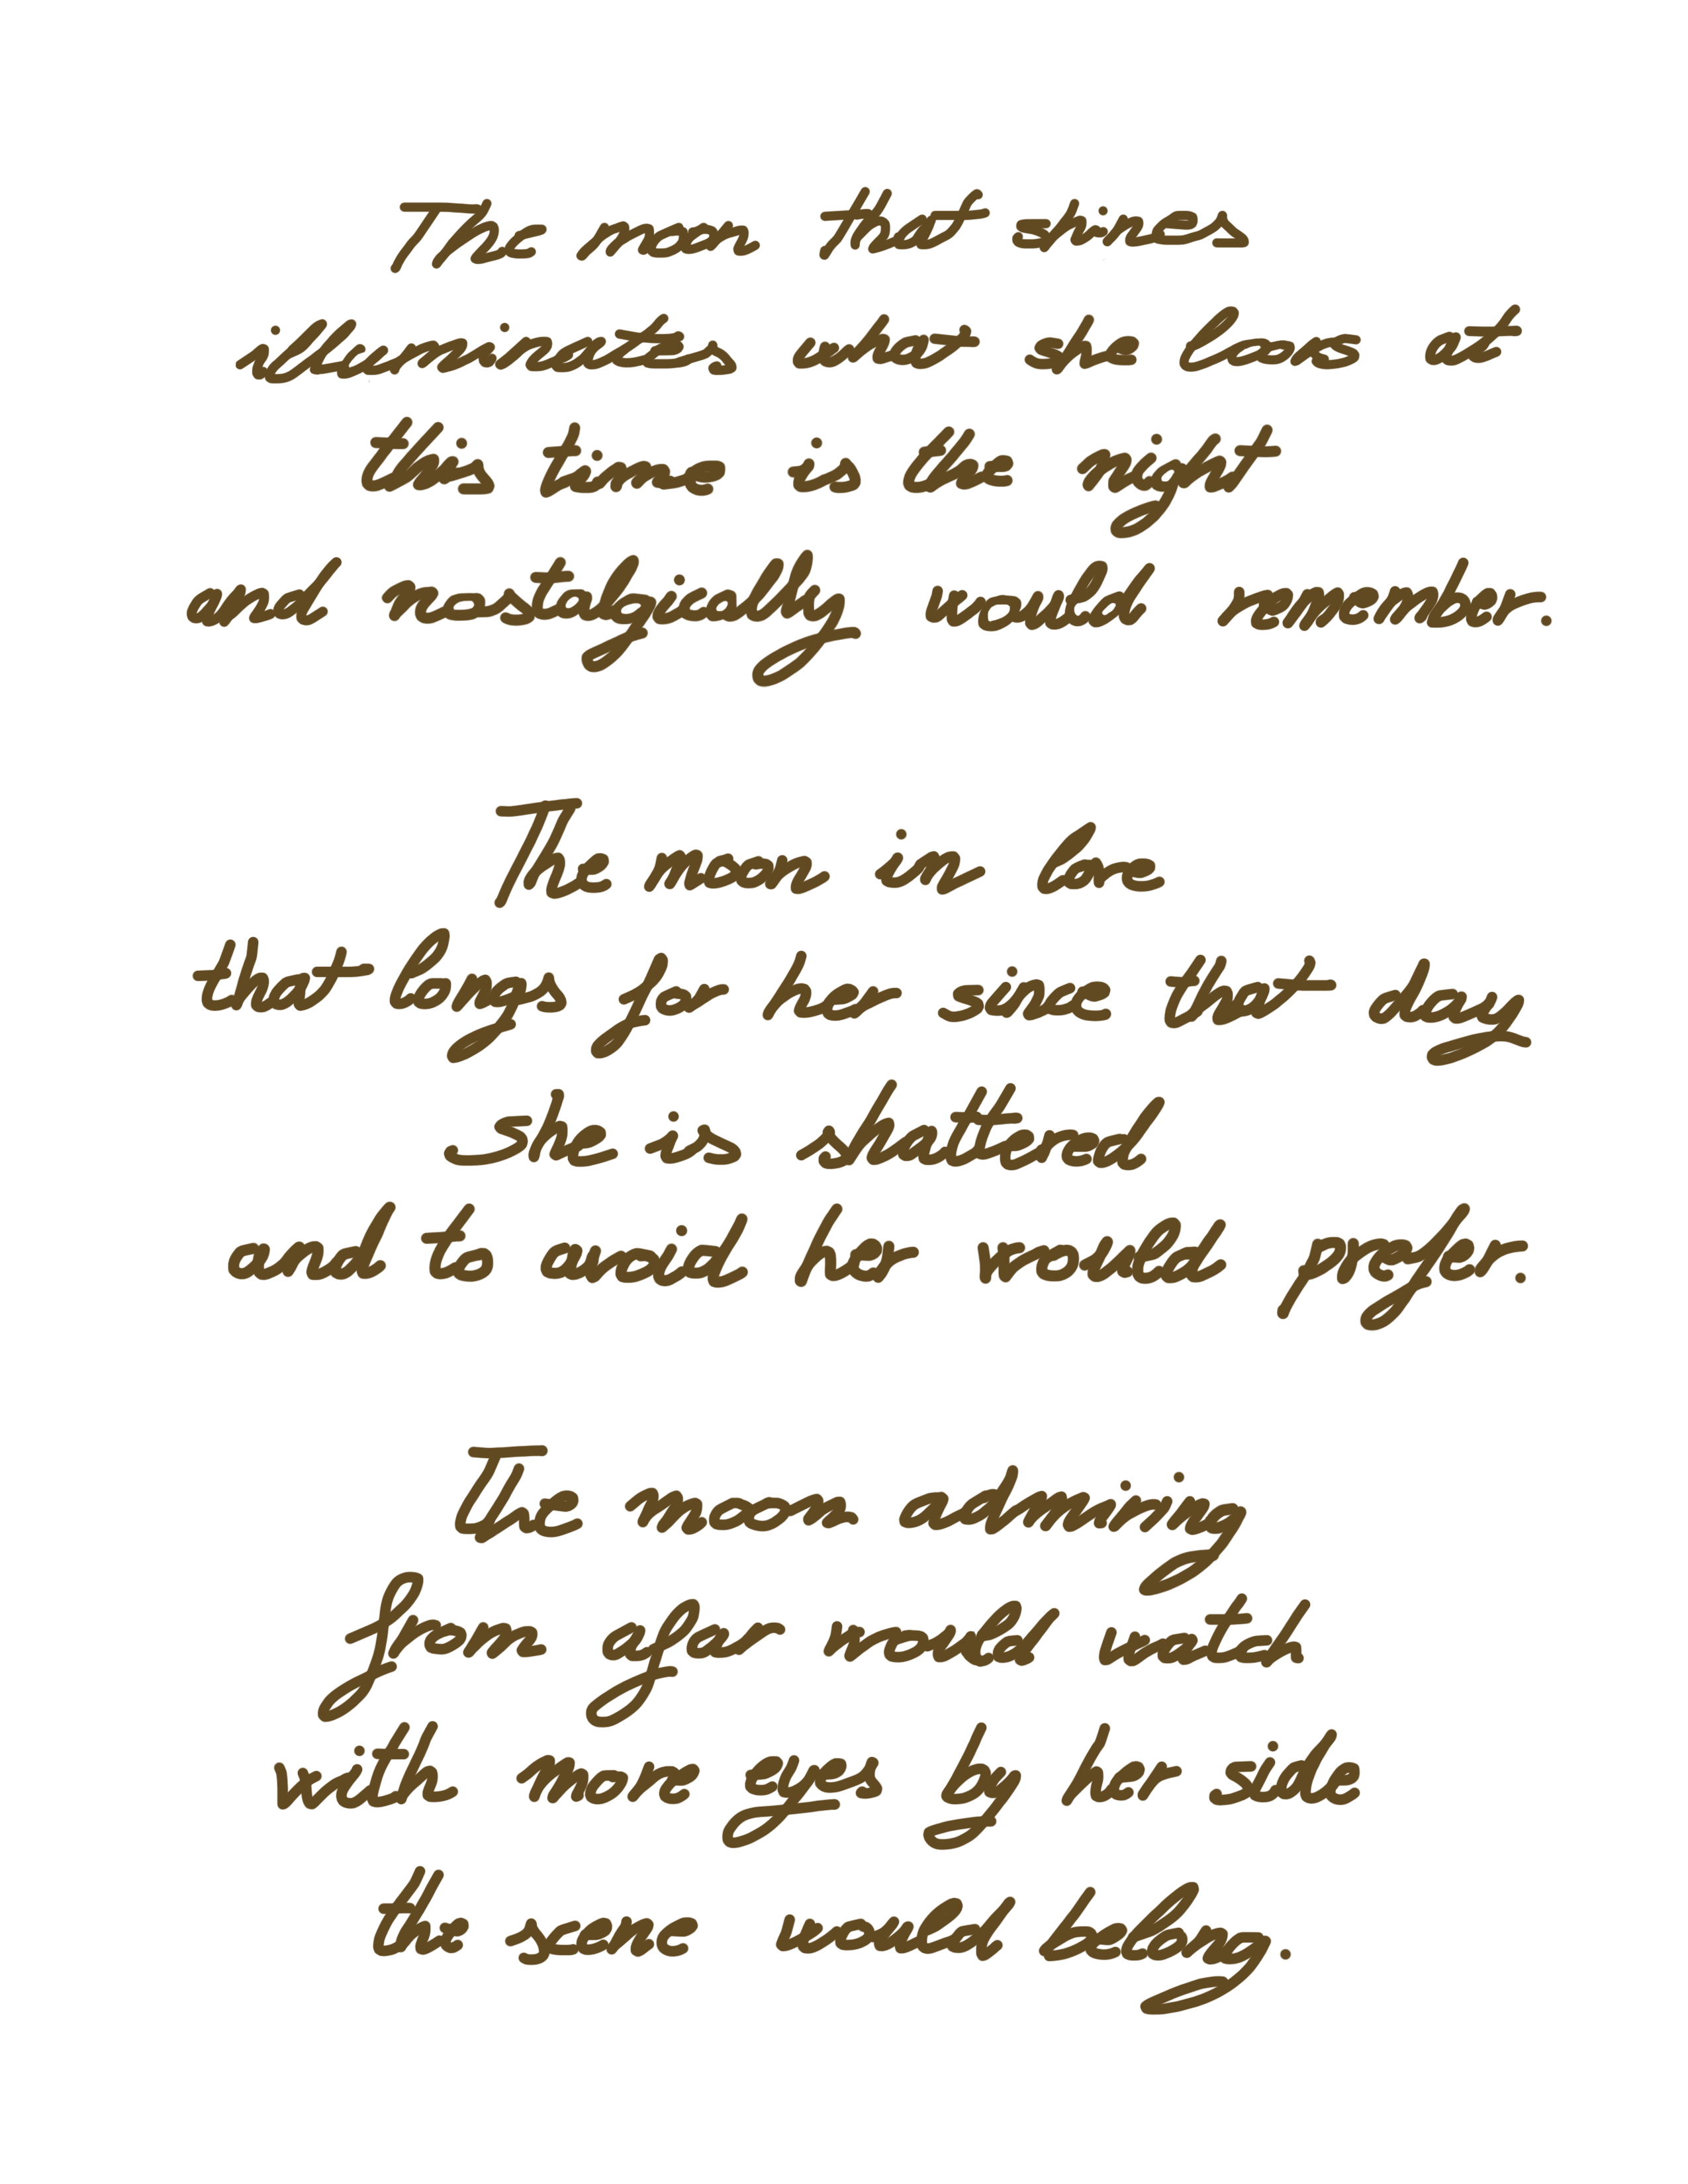 The moon that shines
illuminates what she loves at
this time is the night
and nostalgically would remember.
The moon in love
that longs for her since that day
she is shattered
and to avoid her would prefer.
The moon admiring
from afar would watch
with more eyes by her side
the scene would belong.